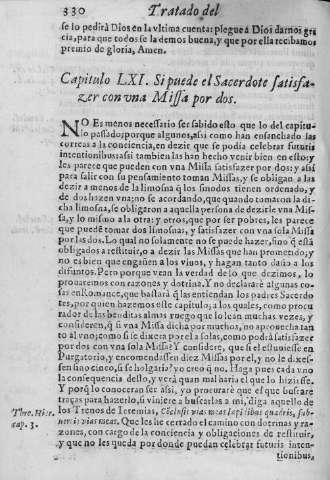 330 Tratado del
se lo pedirà Dios en la vltima cuenta: plegue à Dios darnos gra
cia, para que todos se la demos buena, y que por ella recibamos
premio de gloria, Amen.
Capitulo LXI. Si puede el Sacerdote satisfa-
zer con vna Missa por dos.
NO Es menos necessario ser sabido esto que lo del capitu-
lo passado; porque algunes, assi como han ensanchado las
correas a la conciencia, en dezir que se podia celebrar futuris
intentionibus: assi tambien las han hecho venir bien en esto: y
les parece que pueden con vna Missa satisfazer por dos; y assi
para salir con su pensamiento toman Missas, y se obligan a las
dezir a menos de la limosna q̃ los sinodos tienen ordenado, y
de dos hazen vna; no se acordando, que quando tomaron la di-
cha limosna, se obligaron a aquella persona de dezirle vna Mis-
sa, y lo mismo a la otra: y otros, que por ser pobres, les parece
que puedẽ tomar dos limosnas, y satisfazer con vna sola Missa
por las dos. Lo qual no solamente no se puede hazer, sino q̃ està
obligados a restituir, o a dezir las Missas que han prometido; y
no es bien que engañen a los viuos, y hagan tanto daño a los
difuntos. Pero porque vean la verdad de lo que dezimos, lo
prouaremos con razones y dotrina. Y no declararè algunas co-
sas en Romance, que bastarà q̃ las entiendan los padres Sacerdo
tes, por quien hazemos este capitulo, a los quales, como procu
rador de las benditas almas ruego que lo lean muchas vezes, y
consideren, q̃ si vna Missa dicha por muchos, no aprouecha tan
to al vno; como si se dixera por el a solas, como podrà satisfazer
por dos con vna sola Missa? Y considere, que si el estuuiesse en
Purgatorio, y encomendassen diez Missas por el, y no le dixes-
sen sino cinco, si se holgaria? yo creo q̃ no. Haga pues cada vno
la consequencia dello, y verà quan mal haria el que lo hiziesse.
Y porq̃ lo conozcan ser assi, yo procurarè que el que buscare
traças para hazerlo, si viniere a buscarlas a mi, diga aquello de
Thre. Hier. los Trenos de Ieremias, Cōclusit vias meas lapidibus quadris, sub-
cap. 3. uertit vias meas. Que les he cerrado el camino con dotrinas y ra-
zones, con cargo de la conciencia y obligaciones de restituir,
y que no les queda por donde puedan celebrar futuris inten-
tionibus,